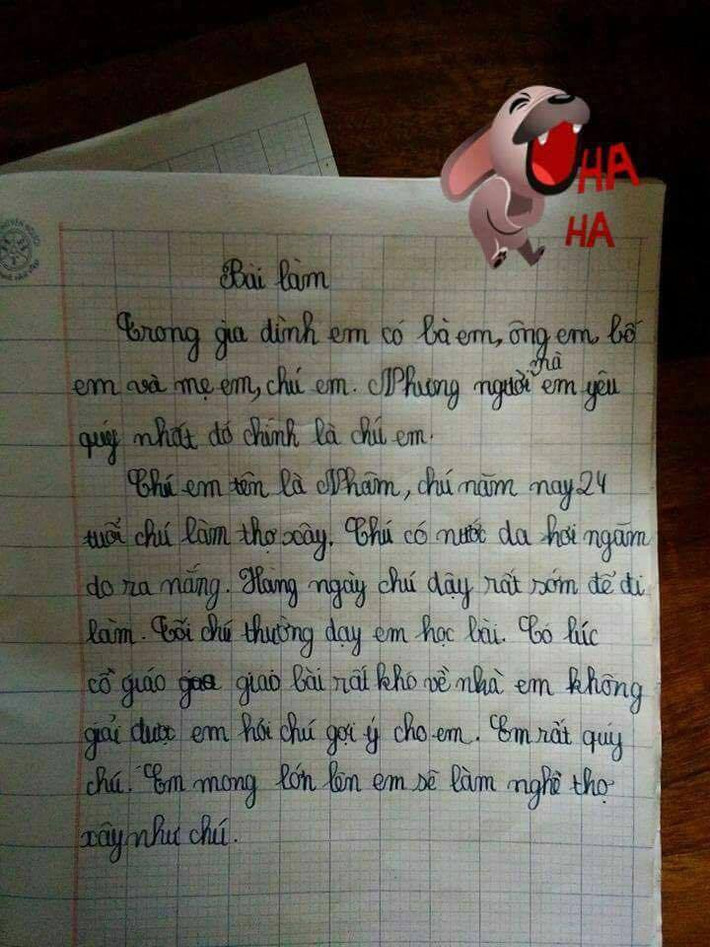 HA
HA
Bài làm
Trong gia dình em có bà em, ông em, bố
em và mẹ em, chú em. Nhưng người mà em yêu
quý nhất đó chính là chú em.
Chú em tên là Nhâm, chú năm nay 24
tuổi chú làm thợ xây. Chú có nước da hơi ngăm
do ra nắng. Hàng ngày chú dậy rất sớm để đi
làm. Tối chú thường dạy em học bài. Có húc
cồ giáo giao bài rất kho về nhà em không
giải được em hỏi chú gợi ý cho em. Em rất quý
chú. Em mong lớn lên em sẽ làm nghề thợ
xây như chú.